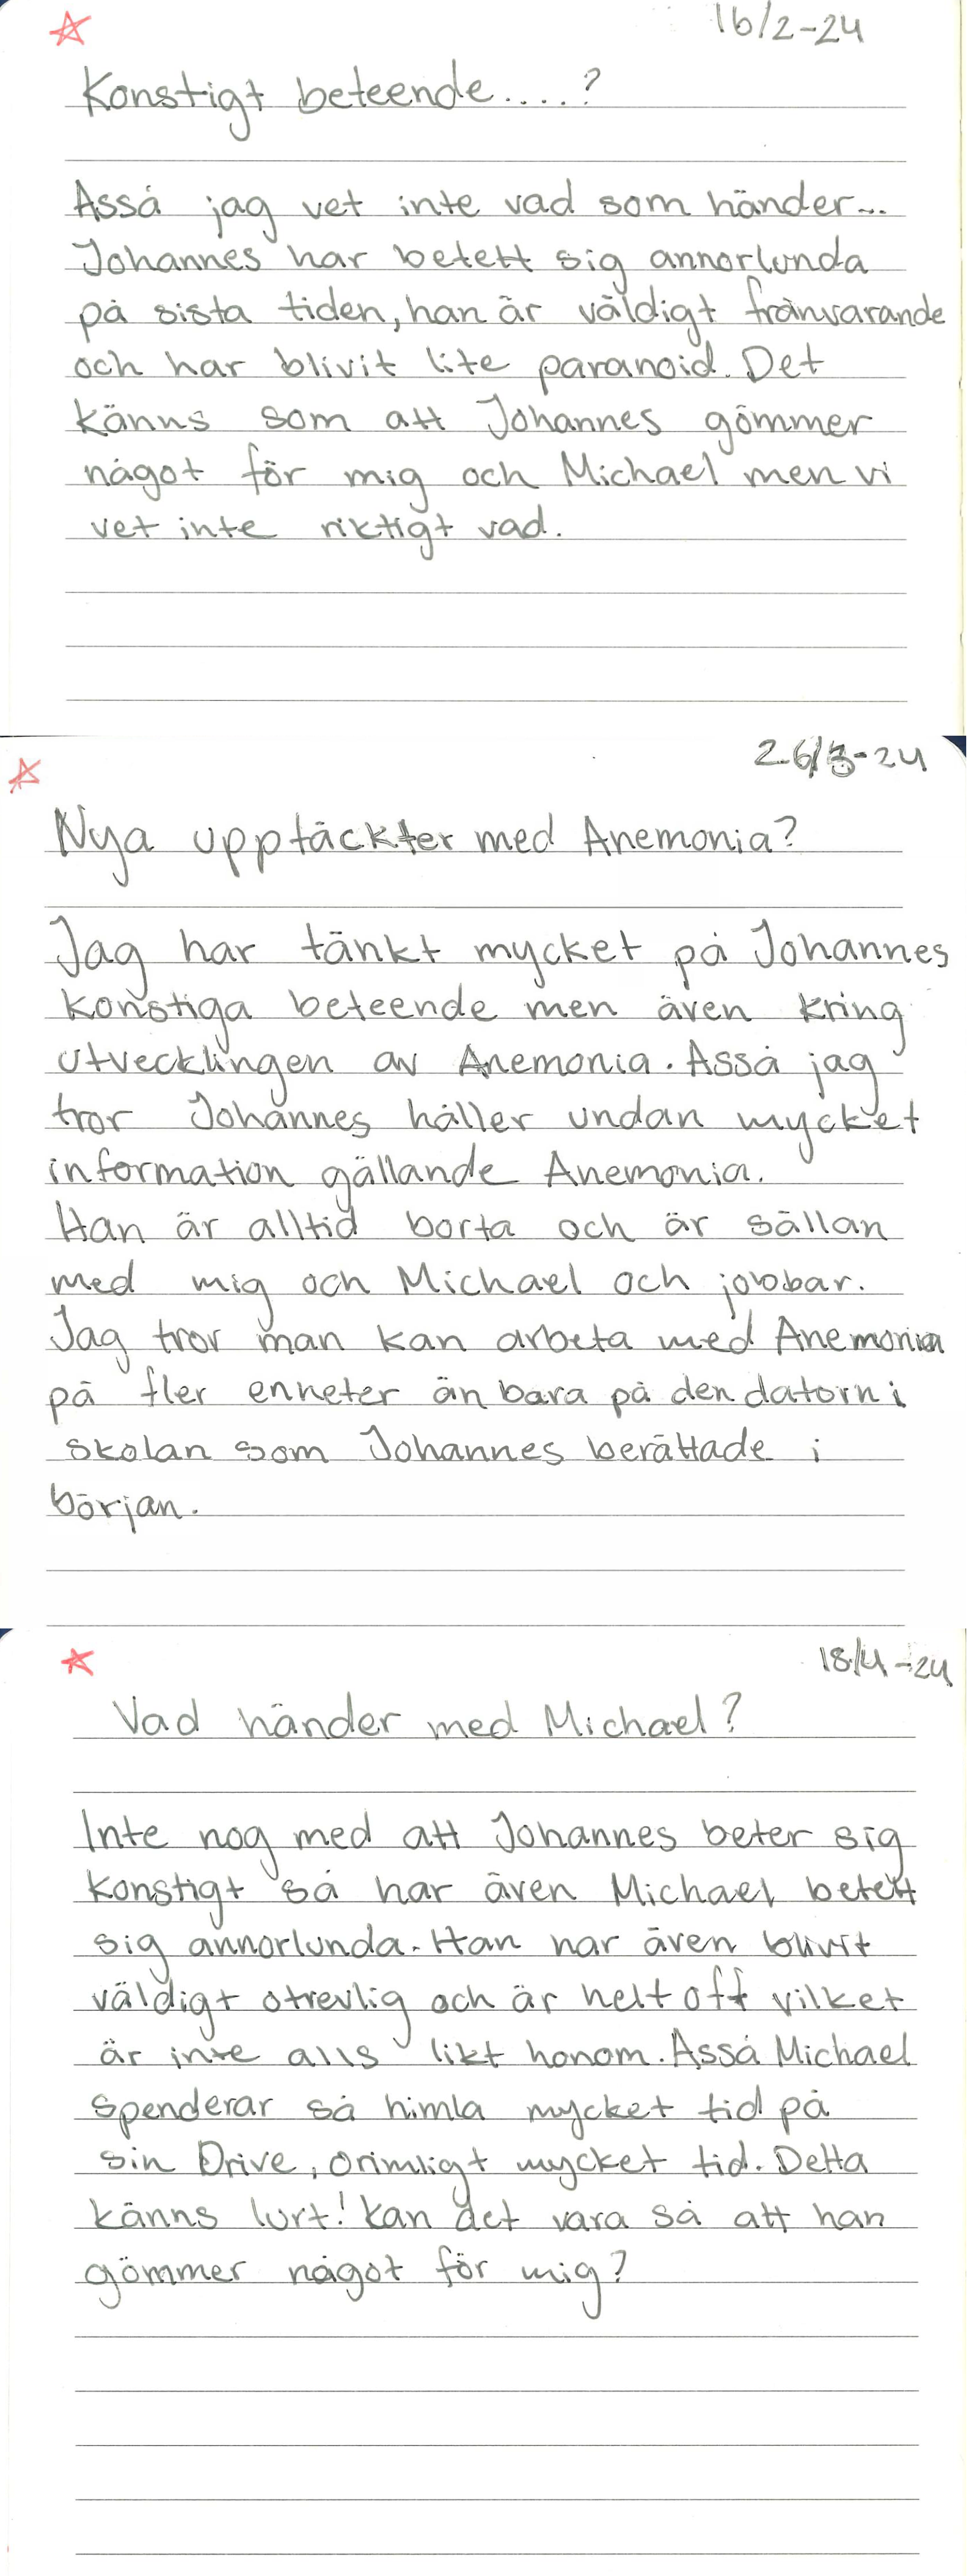 16/2-24
Konstigt beteende.....?
Asså jag vet inte vad som händer...
Johannes har betett sig annorlunda
på sista tiden, han är väldigt frånvarande
och har blivit lite paranoid. Det
känns som att Johannes gömmer
något för mig och Michael men vi
vet inte riktigt vad.
26/3-24
Nya upptäckter med Anemonia?
Jag har tänkt mycket på Johannes
konstiga beteende men även kring
utvecklingen av Anemonia. Asså jag
tror Johannes håller undan mycket
information gällande Anemonia.
Han är alltid borta och är sällan
med mig och Michael och jobbar.
Jag tror man kan arbeta med Anemonia
på fler enheter än bara på den datorn i
skolan som Johannes berättade i
början.
18/4-24
Vad händer med Michael?
Inte nog med att Johannes beter sig
konstigt så har även Michael betett
sig annorlunda. Han har även blivit
väldigt otrevlig och är helt off vilket
är inte alls likt honom. Asså Michael
spenderar så himla mycket tid på
sin Drive, orimligt mycket tid. Detta
känns lurt! Kan det vara så att han
gömmer något för mig?